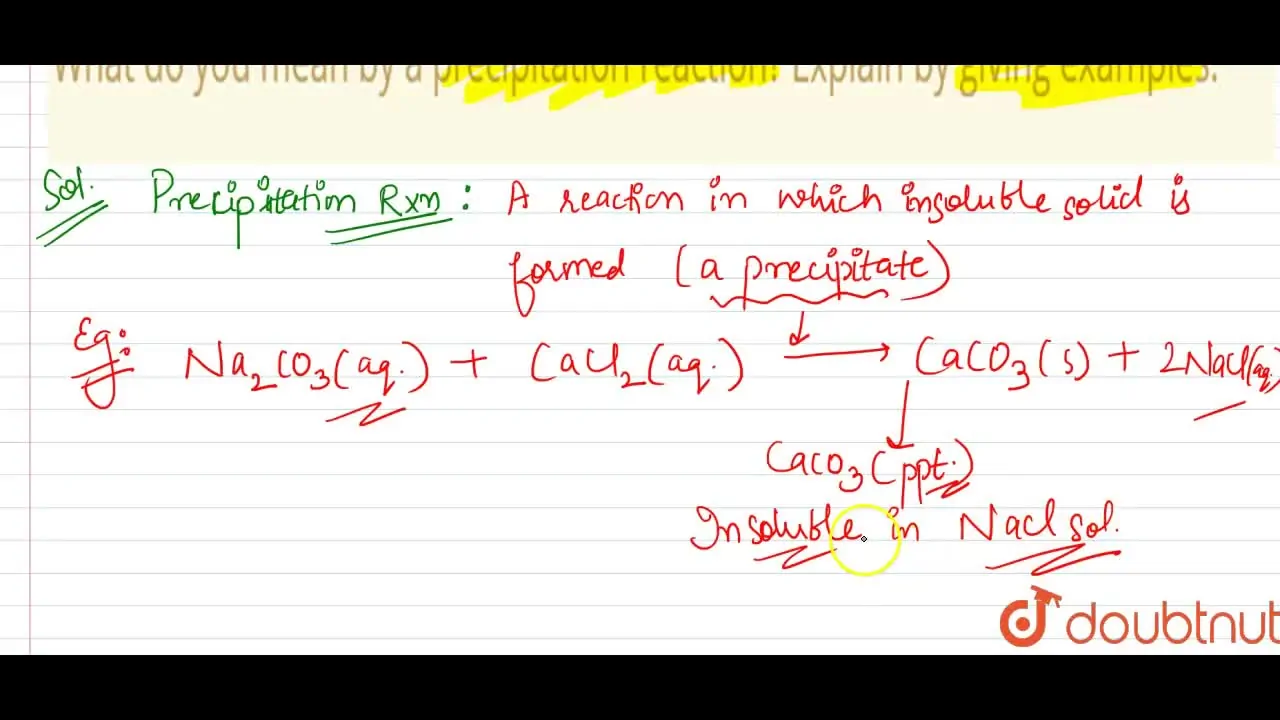 What do you mean by a precipitation reaction? Explain by giving examples.
Sol. Precipitation Rxn : A reaction in which insoluble solid is
formed (a precipitate)
Eg: Na2CO3(aq.) + CaCl2(aq.) → CaCO3(s) + 2NaCl(aq.)
CaCO3(ppt.)
Insoluble in NaCl sol.
doubtnut